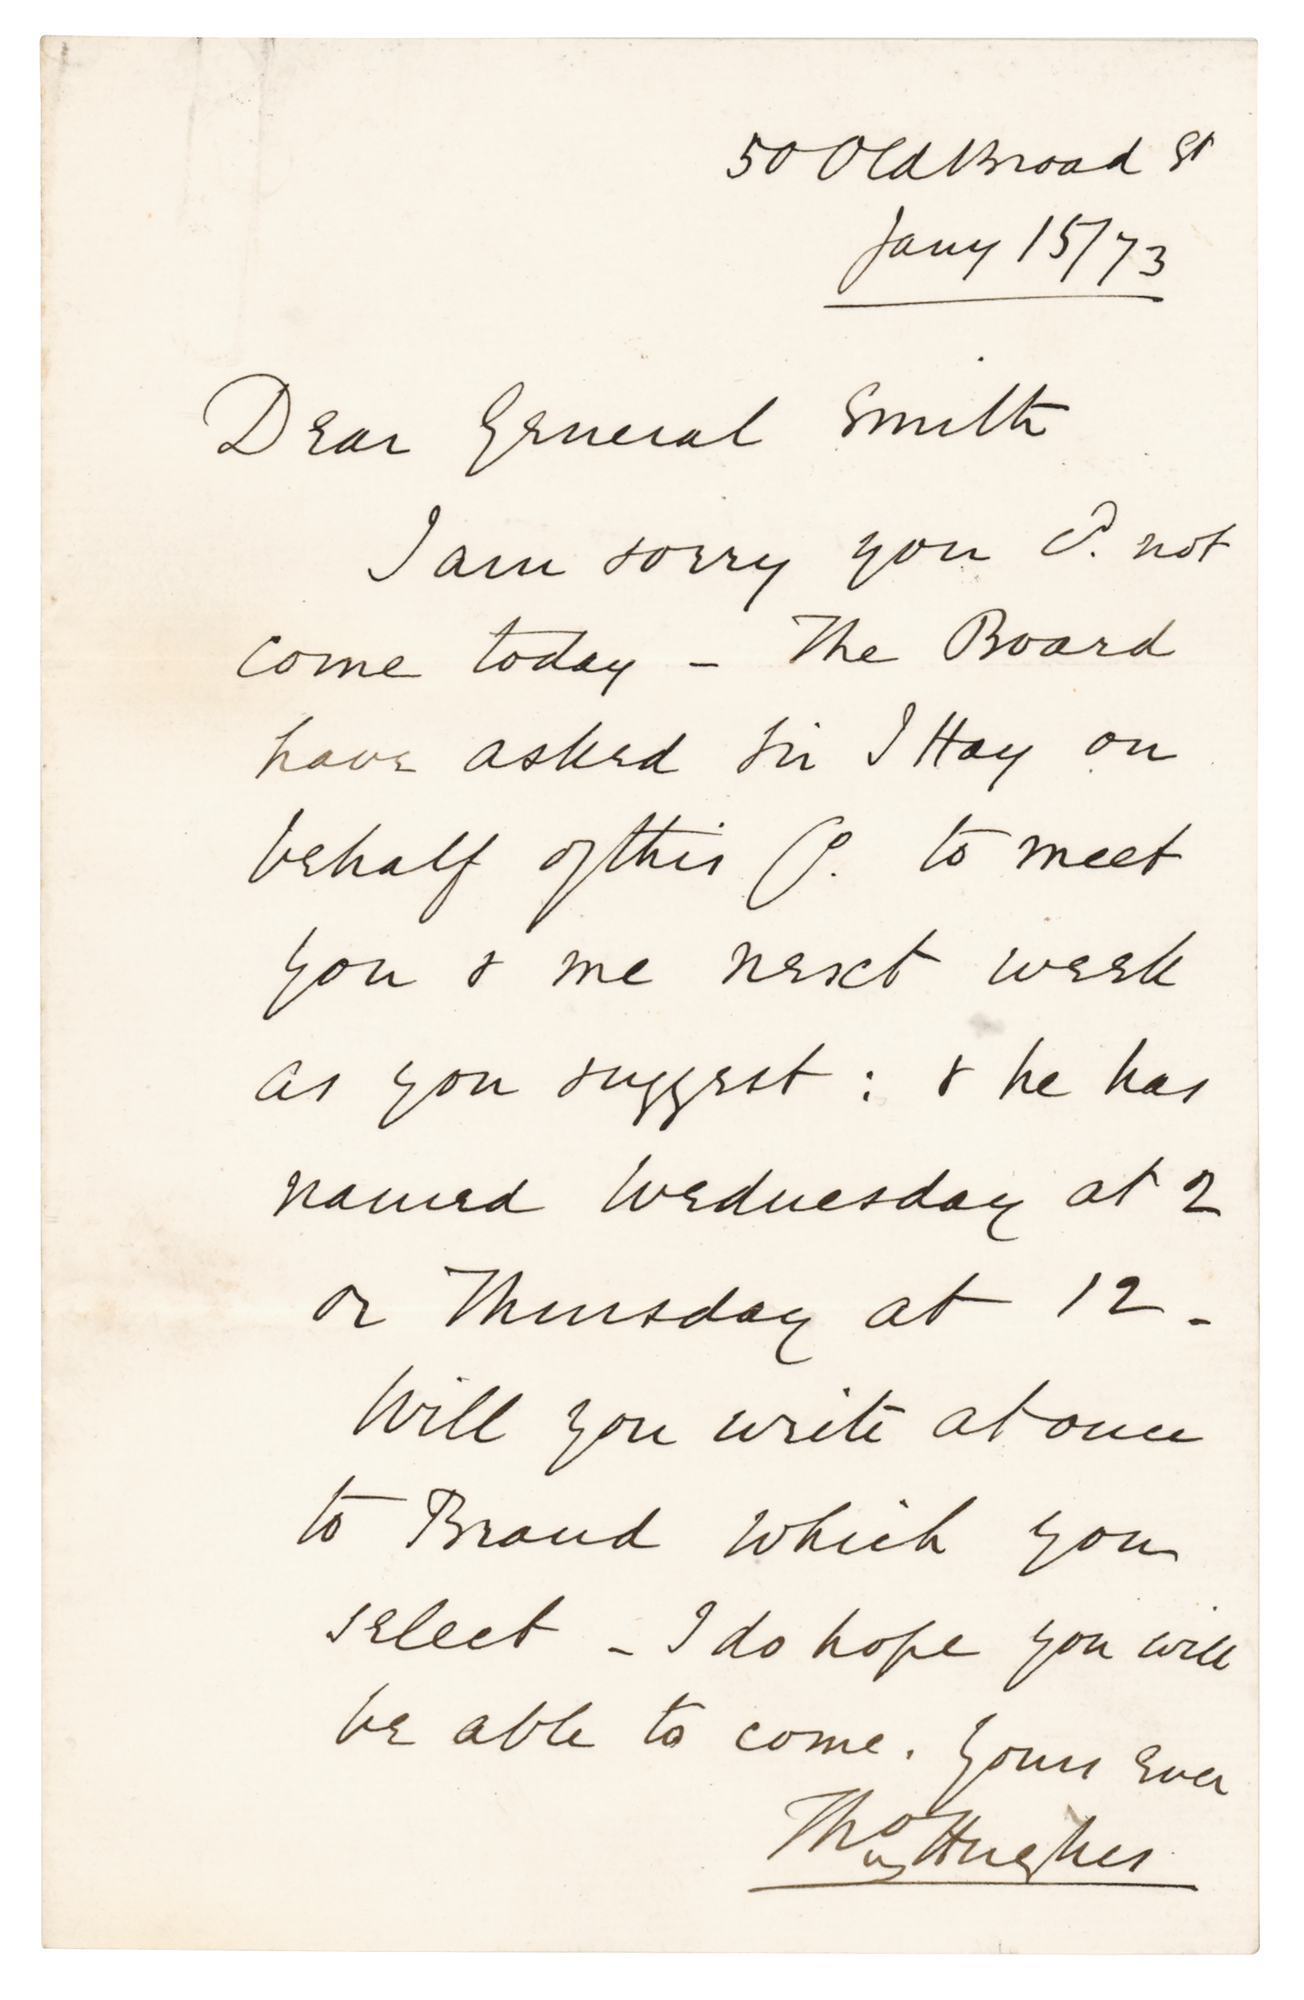 50 Old Broad St
Jany 15/73
Dear General Smith
I am sorry you cd. not
come today – The Board
have asked Sir J Hay on
behalf of this Co. to meet
you & me next week
as you suggest: & he has
named Wednesday at 2
or Thursday at 12 –
Will you write at once
to Brand which you
select – I do hope you will
be able to come. Yours ever
Thos Hughes